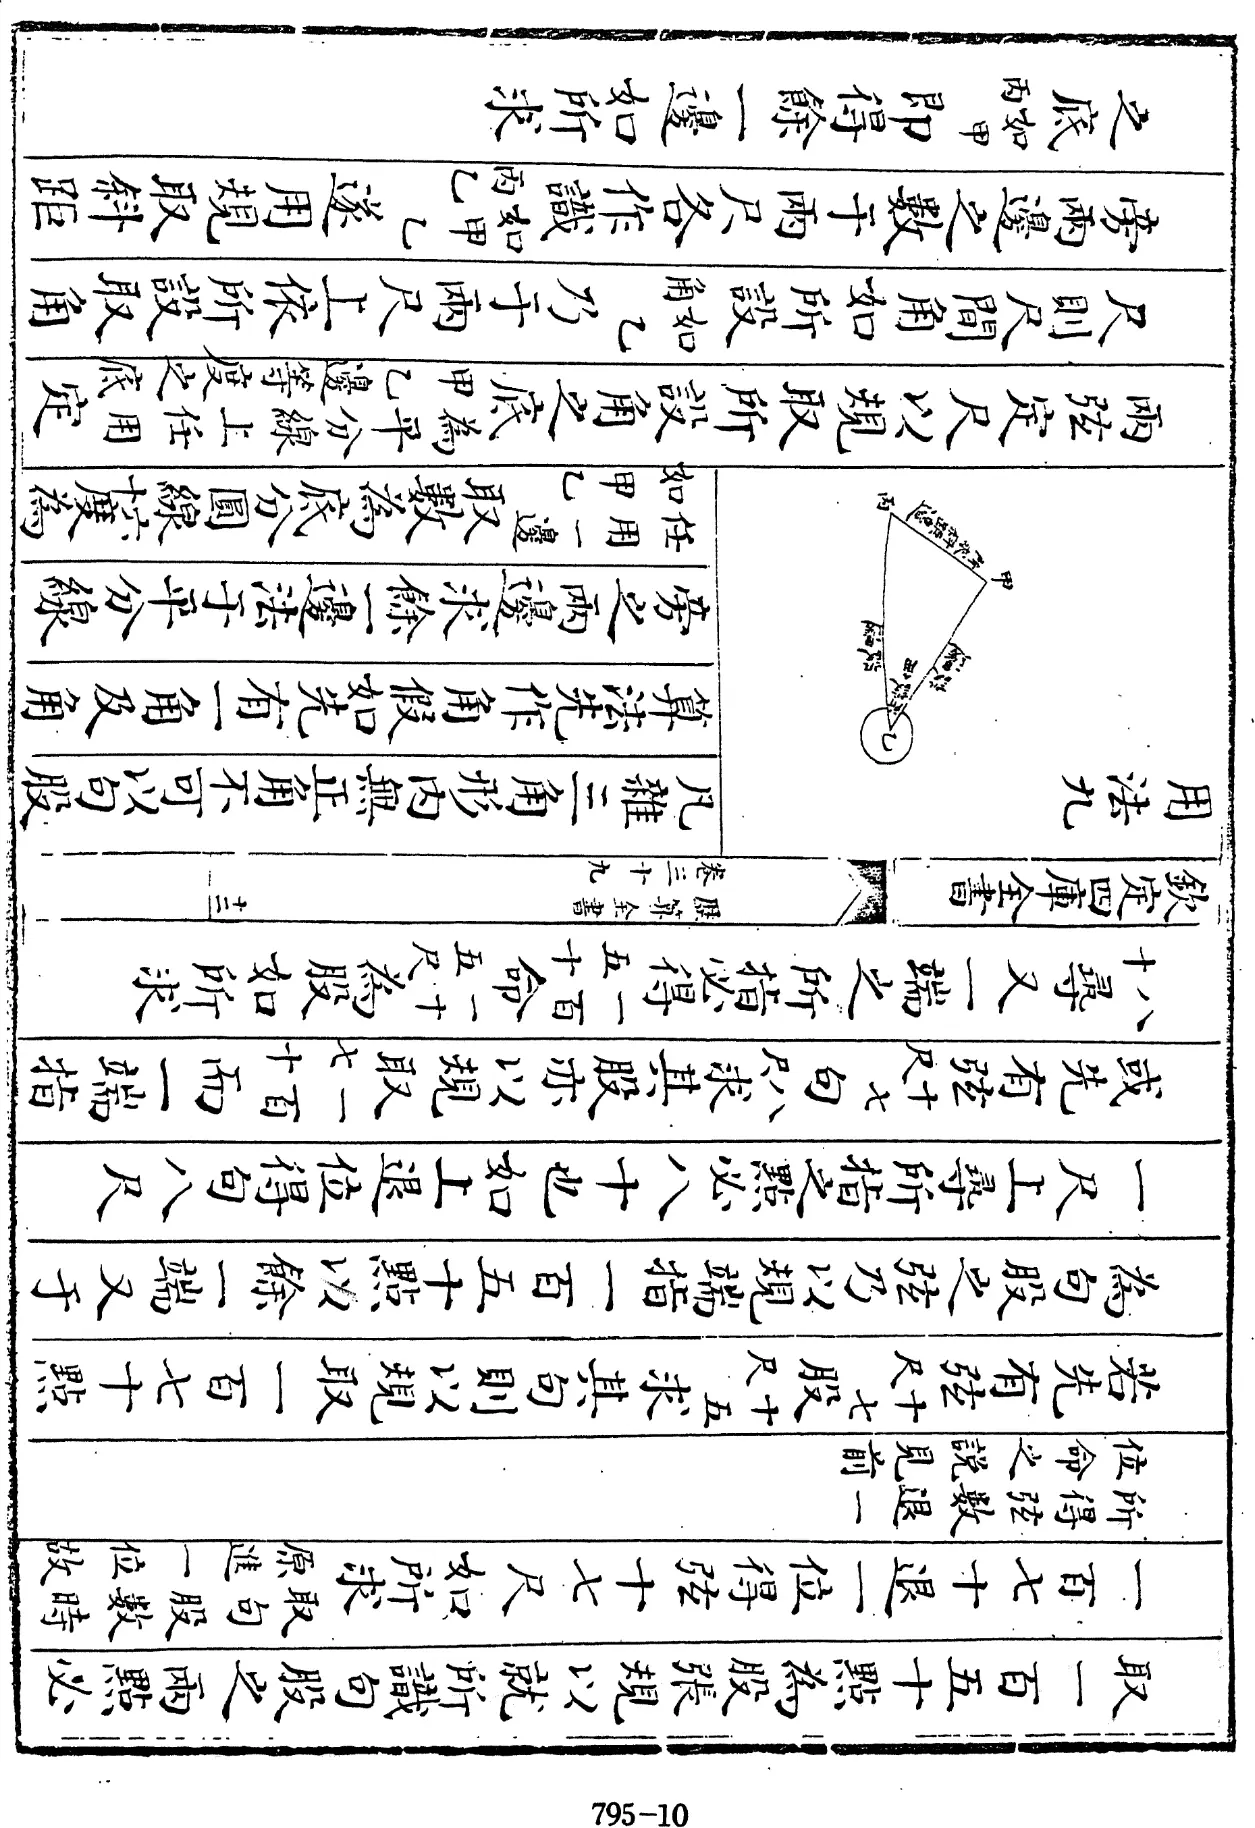 取一百五十點為股張規以就所識句股之兩點必
一百七十退一位得弦十七尺如所求取句股數時原進一位故
所得弦數退一位命之說見前
若先有弦十七尺股十五尺求其句則以規取一百七十點
為句股之弦乃以規端指一百五十點以餘一端又于
一尺上尋所指之點必八十也如上退位得句八尺
或先有弦十七尺句八尺求其股亦以規取一百七十而一端指
八十尋又一端之所指必得一百五十命一十五尺為股如所求
欽定四庫全書
歷算全書
卷三十九
十三
用法九
丙
甲
乙
凡雜三角形內無正角不可以句股
算法先作角假如先有一角及角
旁之兩邊求餘一邊法于平分線
任用一邊如用甲乙取數為底分圓線六十度為
兩弦定尺以規取所設角之底為平分線上任用定甲乙邊等度之底
尺則尺間角如所設如乙角乃于兩尺上依所設取角
旁兩邊之數于兩尺各作識如甲乙乙丙遂用規取斜距
之底如甲丙即得餘一邊如所求
795-10